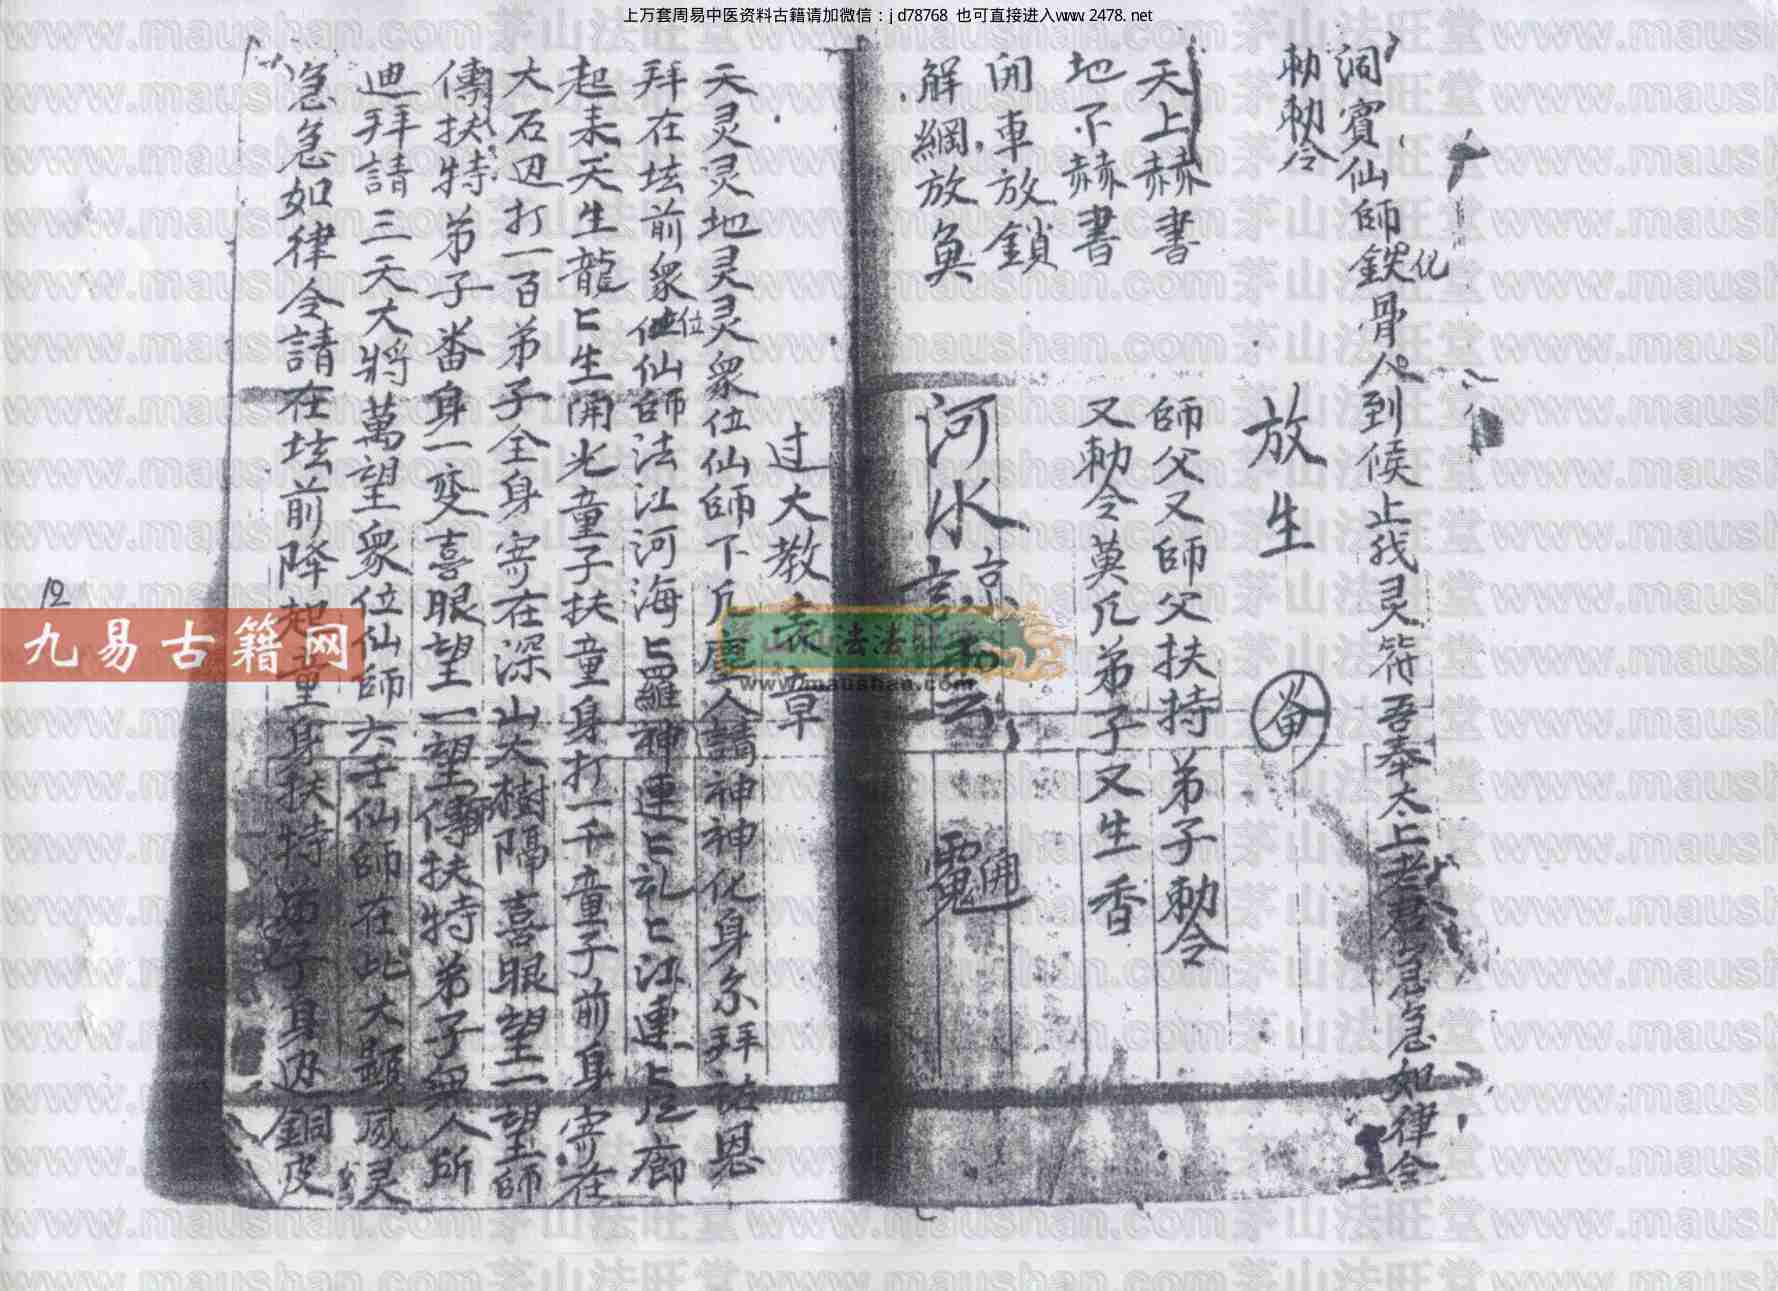 上万套周易中医资料古籍请加微信：jd78768 也可直接进入www.2478.net
洞賓仙師鉄化骨人到候止我灵符吾奉太上老君急急如律令
勅勅令
放生
畨
天上赫書
師父又師父扶持弟子勅令
地下赫書
又勅令莫凡弟子又生香
開車放鎖
解綱放魚
河水諒
云
過大教
天灵灵地灵灵眾位仙師下凡塵人請神神化身糸拜
恩
拜在坛前眾位仙師法江河海匕羅神連匕
匕江連匕
廊
起来天生龍匕生開光童子扶童身打一千童子前身寄在
大石边打一百弟子全身寄在深山大樹隔喜眼望一望師
傳扶特弟子畨身一变喜眼望一望傳扶特弟子無人所
迪拜請三天大将萬望眾位仙師六壬仙師在此大顯威灵
急急如律令請在坛前降起童身扶特弟子身边銅皮
12
九易古籍网
www.maushan.com
www.maushan.com茅山法旺堂